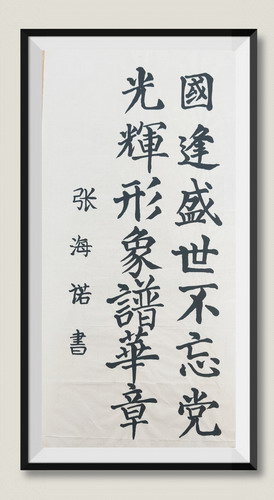 國逢盛世不忘党
光輝形象譜華章
张海诺書